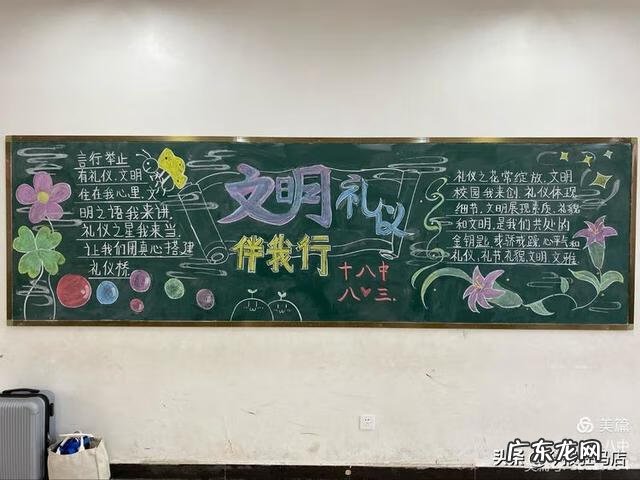 言行举止
有礼仪、文明
住在我心里,文
明之语我来讲,
礼仪之星我来当,
让我们用真心搭建
礼仪桥
文明礼仪
伴我行
十八中
八♥三.
礼仪之花常绽放,文明
校园我来创,礼仪体现
细节,文明展现素质,礼貌
和文明,是我们共处的
金钥匙,
礼仪,礼节礼貌,文明,文雅
美篇
头条
广东龙网